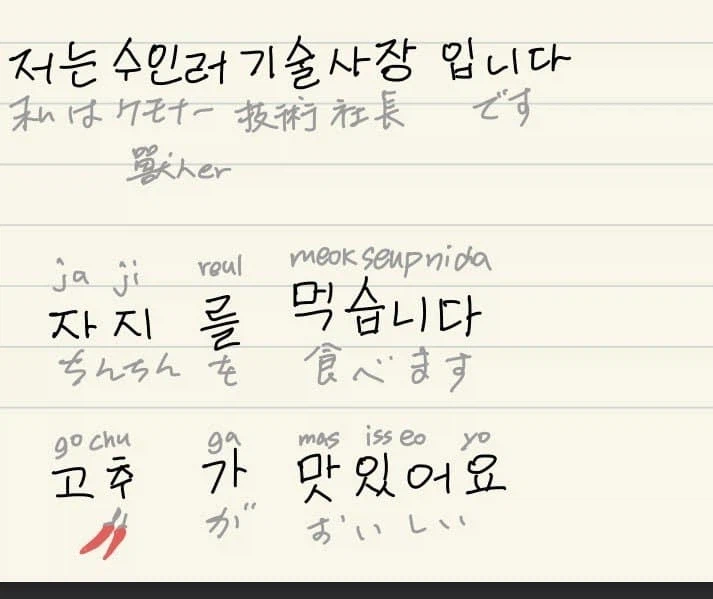 저는 수인러 기술사장 입니다
私は ケモナー 技術社長 です
獸人er
ja ji reul meokseupnida
자지 를 먹습니다
ちんちん を 食べます
go chu ga mas isseo yo
고추 가 맛있어요
が おいしい